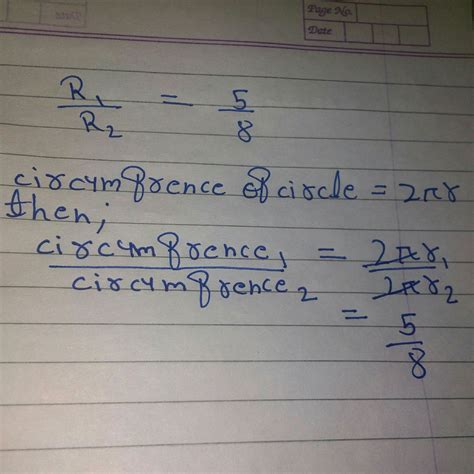 Page No.
Date
R₁/R₂ = 5/8
circumfrence of circle = 2πr
then;
circumfrence₁/circumfrence₂ = 2πr₁/2πr₂
= 5/8